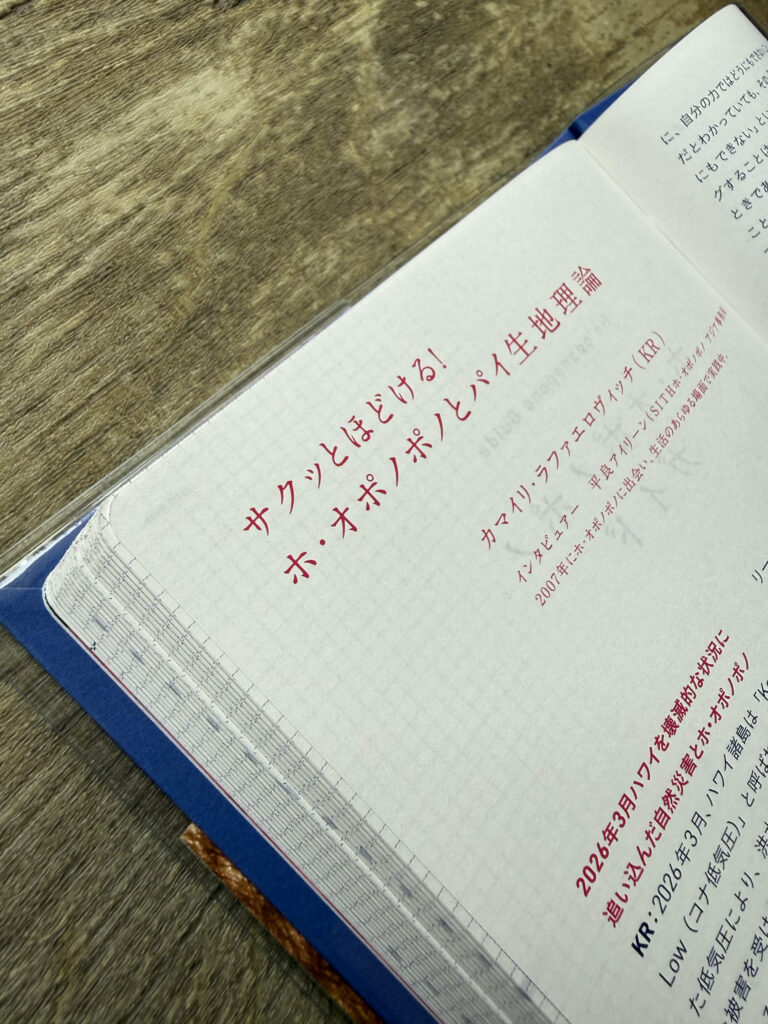 サクッとほどける!
ホ・オポノポノとパイ生地理論
カマイリ・ラファエロヴィッチ(KR)
インタビュアー 平良アイリーン(SITHホ・オポノポノ アジア事務局
2007年にホ・オポノポノに出会い、生活のあらゆる場面で実践中。
リー
2026年3月ハワイを壊滅的な状況に
追い込んだ自然災害とホ・オポノポノ
KR:2026年3月、ハワイ諸島は「Ko
Low(コナ低気圧)」と呼ばれ
た低気圧により、洪水
被害を受け
に、自分の力ではどうにもできない
だとわかっていても、その
にもできない」とい
グすることは
ときであ
こと